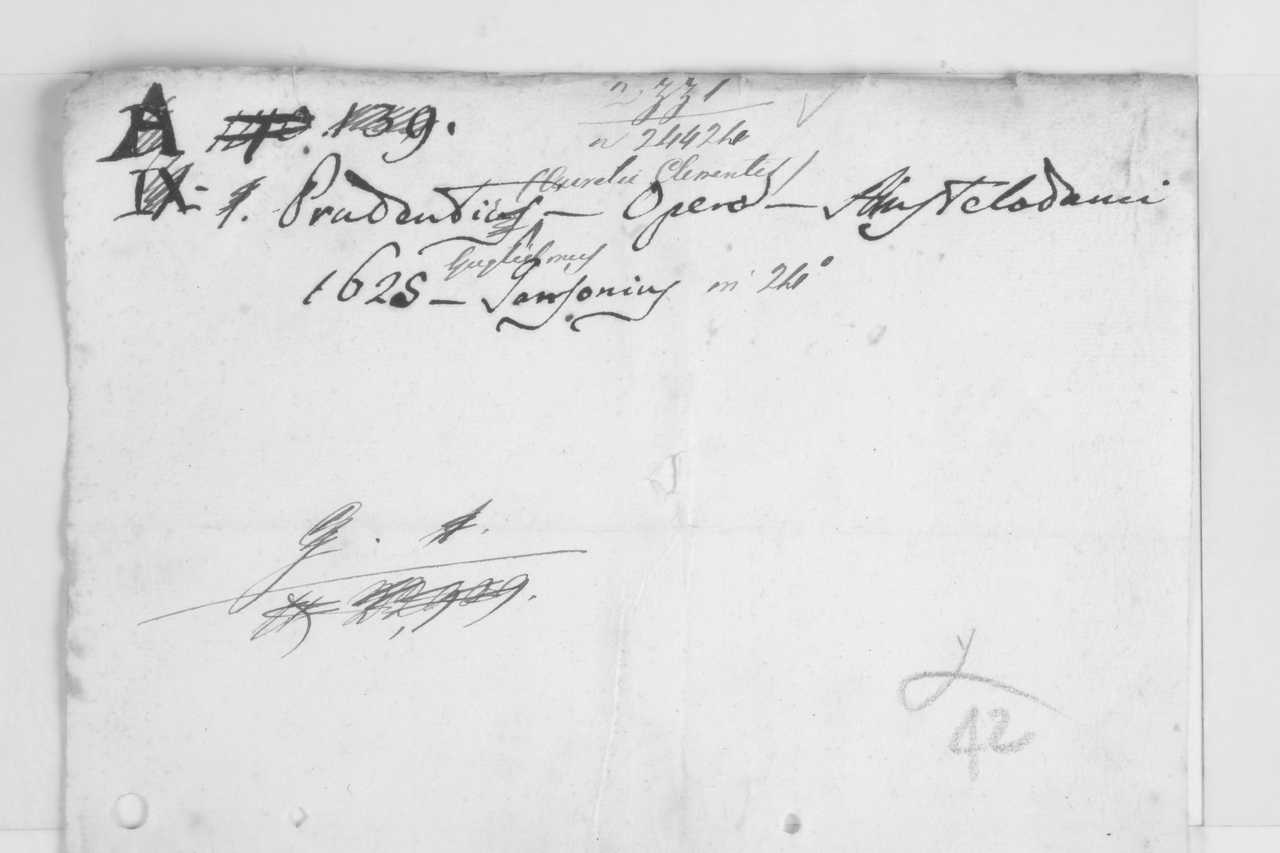 A 139.
2331
n 24424
Aurelii Clementis
IX- 1. Prudentius — Opera — Amstelodami
Guglielmus
1625 — Jansonius in 24°
G. 1.
22,999.
y
42